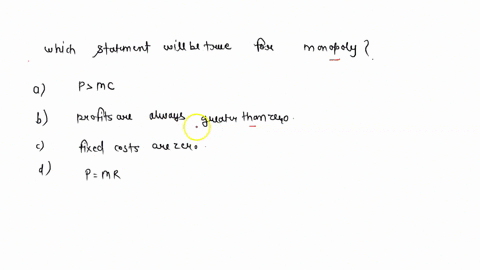 which statement will be true for monopoly?
a) P>MC
b) profits are always greater than zero.
c) fixed costs are zero.
d) P=MR